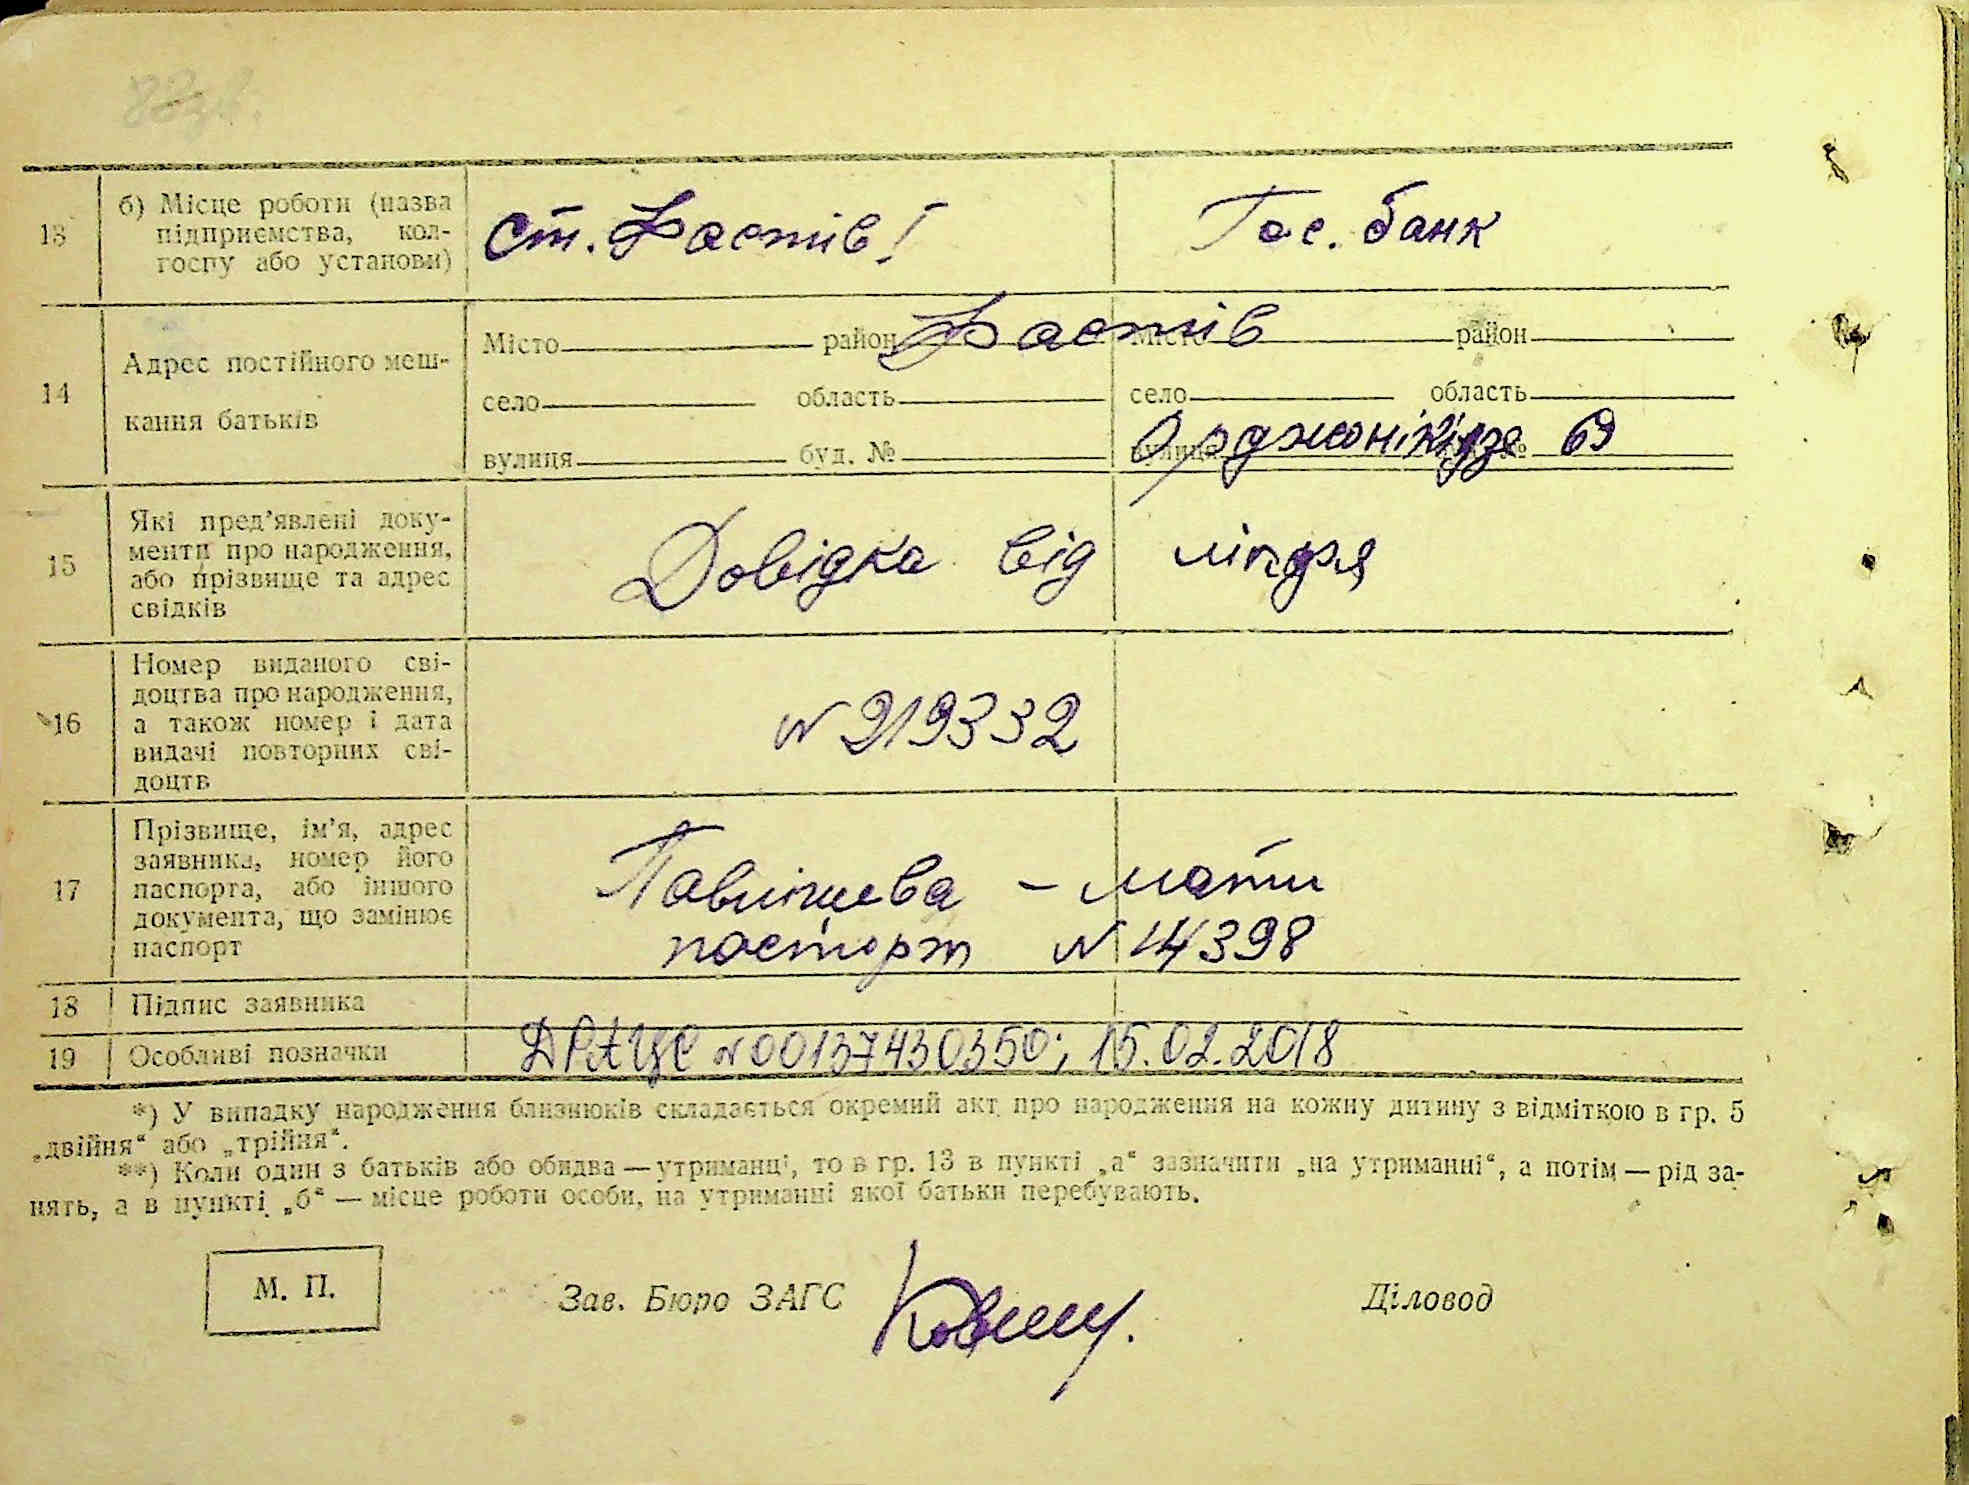 13
б) Місце роботи (назва
підприємства, кол-
госпу або установи)
ст. Фастів I
Гос. банк
14
Адрес постійного меш-
кання батьків
Місто район Місто район
Фастів
село область село область
вулиця буд. № вулиця №
Орджонікідзе 69
15
Які пред'явлені доку-
менти про народження,
або прізвище та адрес
свідків
Довідка від лікаря
16
Номер виданого сві-
доцтва про народження,
а також номер і дата
видачі повторних сві-
доцтв
N 219332
17
Прізвище, ім'я, адрес
заявника, номер його
паспорта, або іншого
документа, що замінює
паспорт
– мати
паспорт N 14398
18
Підпис заявника
19
Особливі позначки
ДРАЦС N 00137430350; 15.02.2018
*) У випадку народження близнюків складається окремий акт про народження на кожну дитину з відміткою в гр. 5
„двійня“ або „трійня“.
**) Коли один з батьків або обидва — утриманці, то в гр. 13 в пункті „а“ зазначити „на утриманні“, а потім — рід за-
нять, а в пункті „б“ — місце роботи особи, на утриманні якої батьки перебувають.
М. П.
Зав. Бюро ЗАГС
Діловод